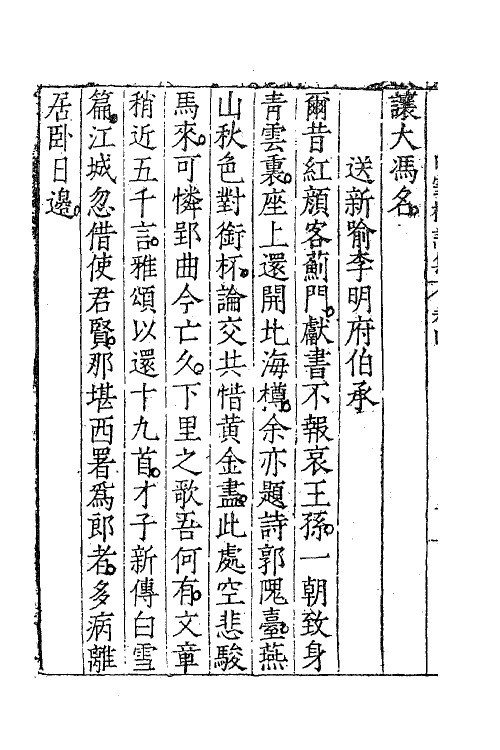 讓大馮名
送新喻李明府伯承
爾昔紅顏客薊門獻書不報哀王孫一朝致身
青雲裏座上還開北海樽余亦題詩郭隗臺燕
山秋色對銜杯論交共惜黄金盡此處空悲駿
馬來可憐郢曲今亡久下里之歌吾何有文章
稍近五千言雅頌以還十九首才子新傳白雪
篇江城忽借使君賢那堪西署爲郎者多病離
居卧日邊